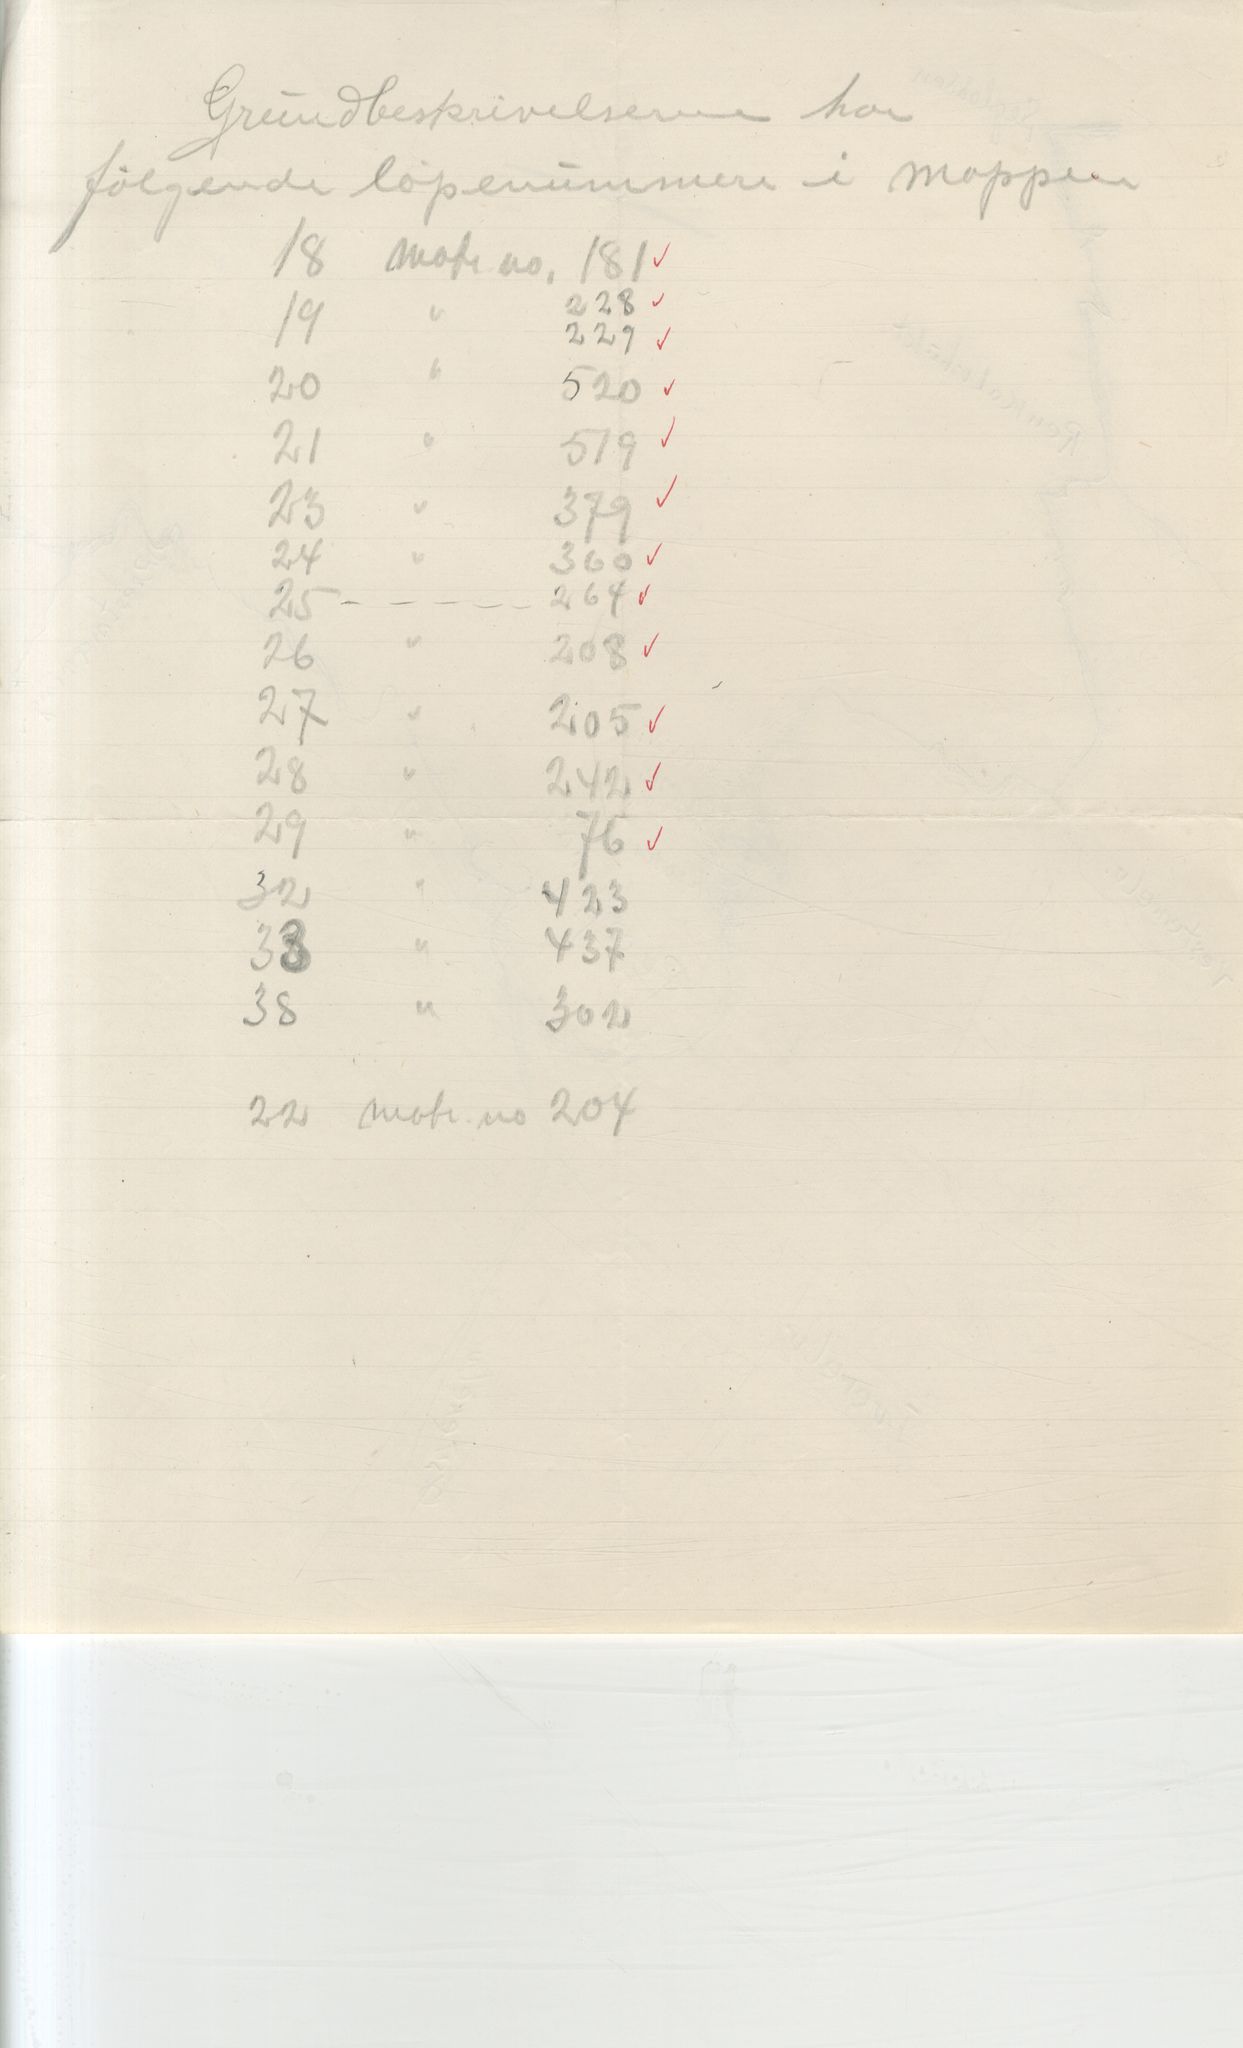 Grundbeskrivelserne har
følgende løpenummere i mappen
18 matr. no. 181 ✓
19 " 228 ✓
229 ✓
20 " 520 ✓
21 " 519 ✓
23 " 379 ✓
24 " 360 ✓
25 - - - - - 264 ✓
26 " 208 ✓
27 " 205 ✓
28 " 242 ✓
29 " 76 ✓
32 " 423
33 " 437
38 " 302
22 matr. no 204